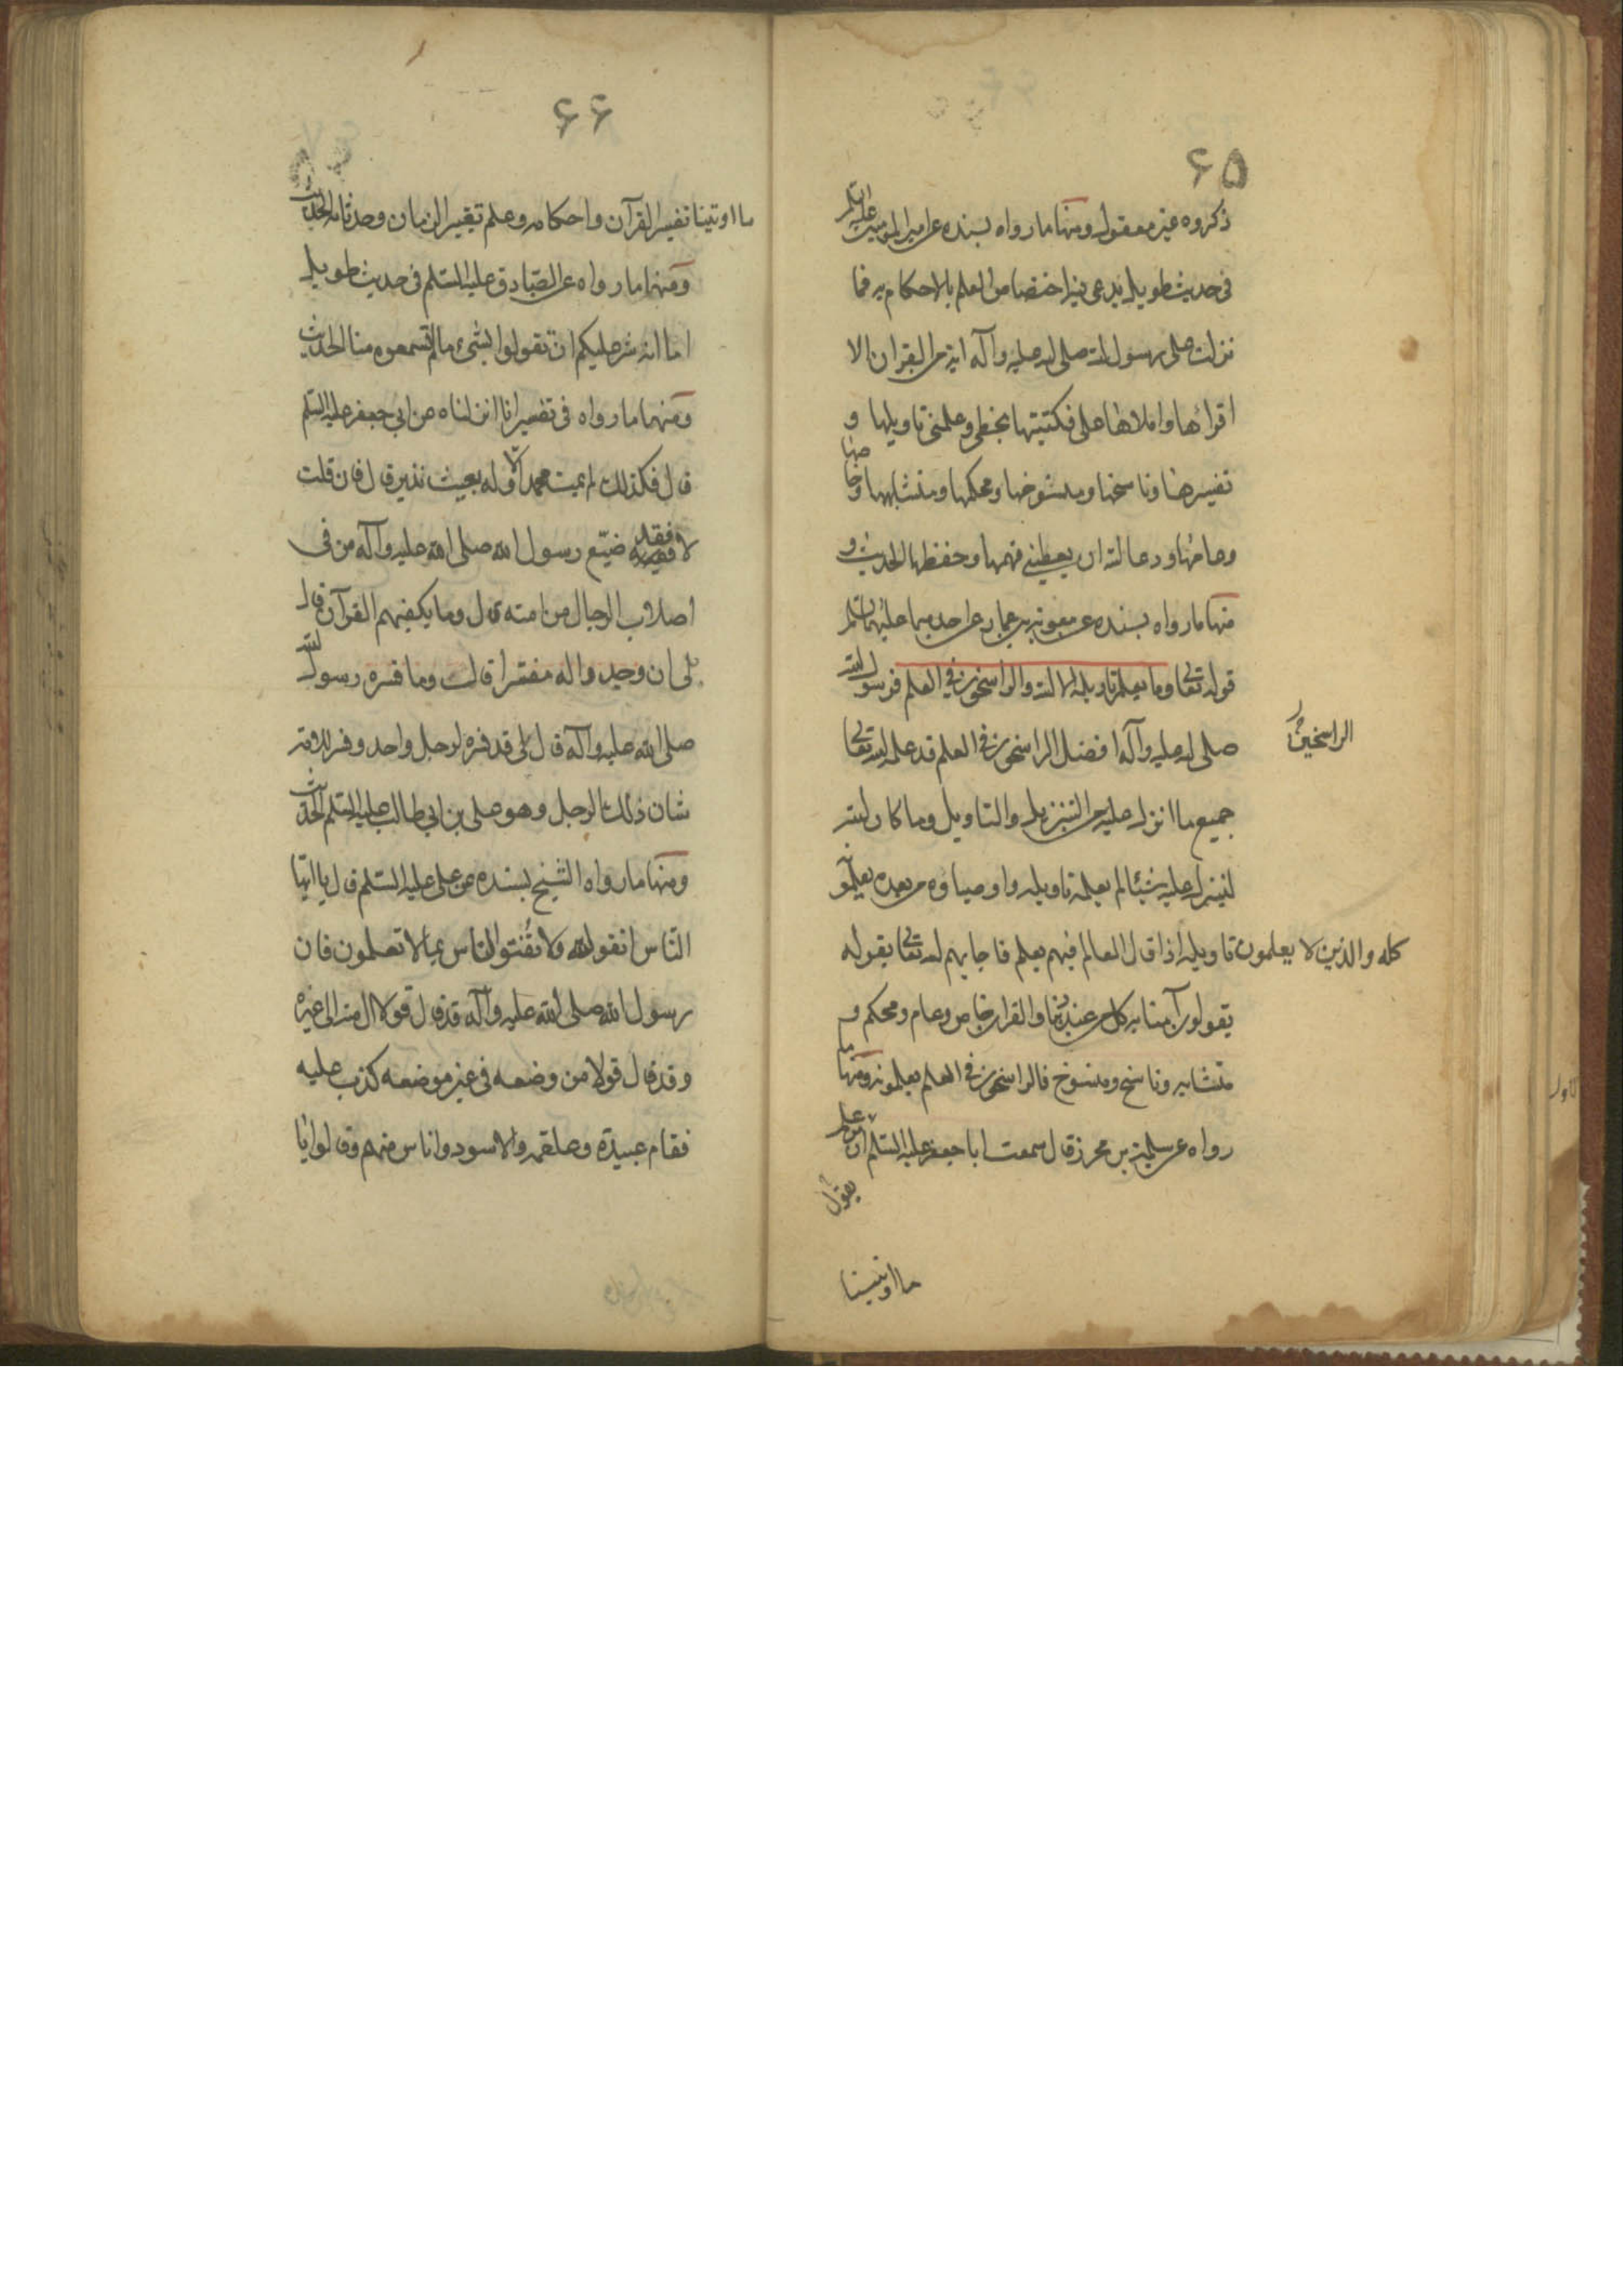 ۶۵
ذكروه غير معقول ومنها ما رواه بسنده عن امير المومنين عليه السلم
فى حديث طويل يدعى فيه اختصاص العلم بالاحكام به فما
نزلت على رسول الله صلى الله عليه وآله اية من القران الا
اقرائها واملاها على فكتبتها بخطى وعلمنى تاويلها و
تفسيرها وناسخها ومنسوخها ومحكمها ومتشابهها وخاصها
وعامها ودعا الله ان يعطينى فهمها وحفظها الحديث و
منها ما رواه بسنده عن معوية بن عمار عن احدهما عليهما السلم
قوله تعالى وما يعلم تاويله الا الله والراسخون في العلم فرسول الله
صلى الله عليه وآله افضل الراسخون في العلم قد علمه الله تعالى
الراسخين
جميع ما انزل عليه من التنزيل والتاويل وما كان الله
لينزل عليه شيئا لم يعلمه تاويله واوصياؤه من بعده يعلمون
كله والذين لا يعلمون تاويله اذا قال العالم فيهم بعلم فاجابهم الله تعالى بقوله
يقولون آمنا به كل من عند ربنا والقران خاص وعام ومحكم و
متشابه وناسخ ومنسوخ فالراسخون في العلم يعلمونه ومنها ما
رواه عن سلمة بن محرز قال سمعت ابا جعفر عليه السلم ان من علم
يقول
ما اوتينا
۶۶
ما اوتينا تفسير القرآن واحكامه وعلم تغيير الزمان وحدثانه الحديث
ومنها ما رواه عن الصادق عليه السلم فى حديث طويل
اما انه شر عليكم ان تقولوا بشئ ما لم تسمعوه منا الحديث
ومنها ما رواه فى تفسير انا انزلناه عن ابي جعفر عليه السلم
قال فكذلك لم يمت محمد الا وله بعيث نذير قال فان قلت
لا فقد ضيّع رسول الله صلى الله عليه وآله من فى
اصلاب الرجال من امته قال وما يكفيهم القرآن قال
بلى ان وجدوا له مفسرا قالت وما فسره رسول الله
صلى الله عليه وآله قال بلى قد فسره لرجل واحد وفسر للامة
شان ذلك الرجل وهو على بن ابي طالب عليه السلم الحديث
ومنها ما رواه الشيخ بسنده عن على عليه السلم قال يا ايها
النّاس اتقوا الله ولا تُفْتوا الناس بما لا تعلمون فان
رسول الله صلى الله عليه وآله قد قال قولا ال منه الى غيره
وقد قال قولا من وضعه فى غير موضعه كذب عليه
فقام عبيدة وعلقمه والاسود واناس منهم وقالوا يا